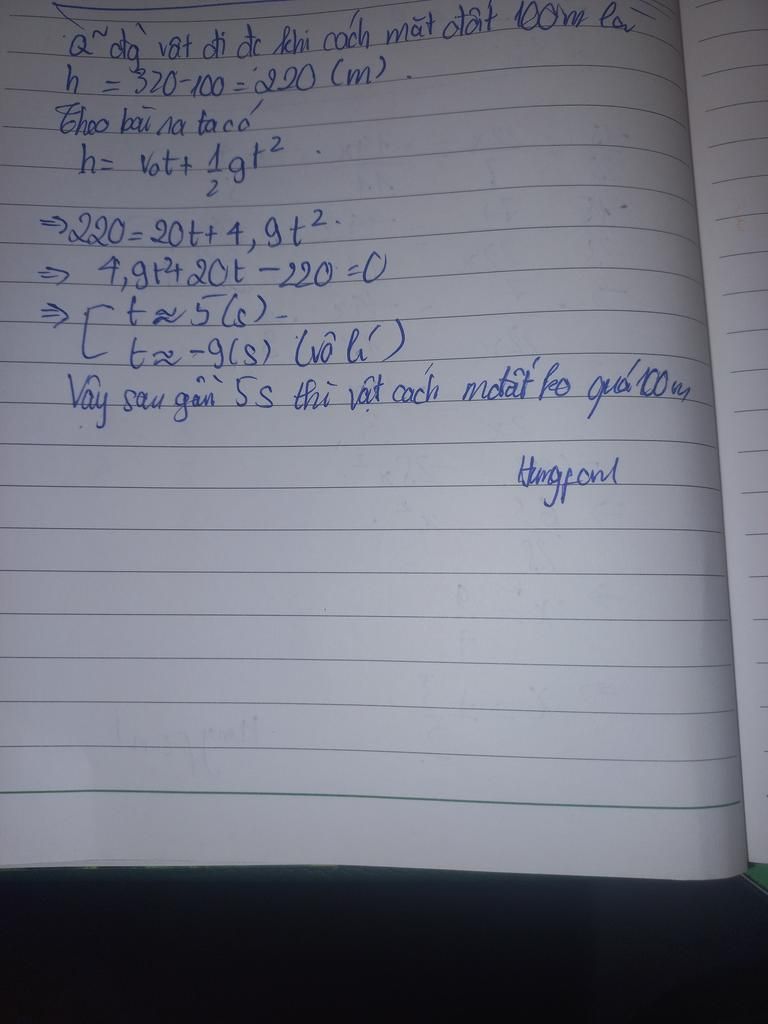 Q~ đg vật đi đc khi cách mặt đất 100m là
h = 320-100 = 220 (m).
Theo bài ra ta có
h = v₀t + 1/2 gt².
⇒ 220 = 20t + 4,9t².
⇒ 4,9t² + 20t - 220 = 0
⇒ [ t ≈ 5(s) -
t ≈ -9(s) (vô lí)
Vậy sau gần 5s thì vật cách mđất ko quá 100m